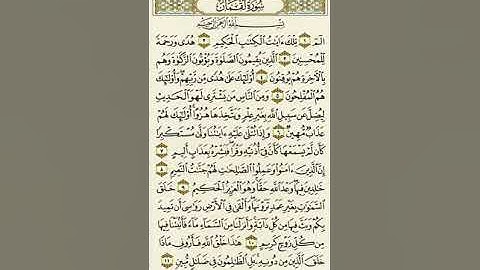 سُورَةُ لُقْمَانَ
بِسْمِ اللَّهِ الرَّحْمَٰنِ الرَّحِيمِ
الٓمٓ ١ تِلْكَ ءَايَٰتُ ٱلْكِتَٰبِ ٱلْحَكِيمِ ٢ هُدًى وَرَحْمَةً
لِّلْمُحْسِنِينَ ٣ ٱلَّذِينَ يُقِيمُونَ ٱلصَّلَوٰةَ وَيُؤْتُونَ ٱلزَّكَوٰةَ وَهُم
بِٱلْءَاخِرَةِ هُمْ يُوقِنُونَ ٤ أُو۟لَٰٓئِكَ عَلَىٰ هُدًى مِّن رَّبِّهِمْ وَأُو۟لَٰٓئِكَ
هُمُ ٱلْمُفْلِحُونَ ٥ وَمِنَ ٱلنَّاسِ مَن يَشْتَرِى لَهْوَ ٱلْحَدِيثِ
لِيُضِلَّ عَن سَبِيلِ ٱللَّهِ بِغَيْرِ عِلْمٍ وَيَتَّخِذَهَا هُزُوًا أُو۟لَٰٓئِكَ لَهُمْ
عَذَابٌ مُّهِينٌ ٦ وَإِذَا تُتْلَىٰ عَلَيْهِ ءَايَٰتُنَا وَلَّىٰ مُسْتَكْبِرًا
كَأَن لَّمْ يَسْمَعْهَا كَأَنَّ فِىٓ أُذُنَيْهِ وَقْرًا فَبَشِّرْهُ بِعَذَابٍ أَلِيمٍ ٧
إِنَّ ٱلَّذِينَ ءَامَنُوا۟ وَعَمِلُوا۟ ٱلصَّٰلِحَٰتِ لَهُمْ جَنَّٰتُ ٱلنَّعِيمِ ٨
خَٰلِدِينَ فِيهَا وَعْدَ ٱللَّهِ حَقًّا وَهُوَ ٱلْعَزِيزُ ٱلْحَكِيمُ ٩ خَلَقَ
ٱلسَّمَٰوَٰتِ بِغَيْرِ عَمَدٍ تَرَوْنَهَا وَأَلْقَىٰ فِى ٱلْأَرْضِ رَوَٰسِىَ أَن تَمِيدَ
بِكُمْ وَبَثَّ فِيهَا مِن كُلِّ دَآبَّةٍ وَأَنزَلْنَا مِنَ ٱلسَّمَآءِ مَآءً فَأَنۢبَتْنَا فِيهَا
مِن كُلِّ زَوْجٍ كَرِيمٍ ١٠ هَٰذَا خَلْقُ ٱللَّهِ فَأَرُونِى مَاذَا
خَلَقَ ٱلَّذِينَ مِن دُونِهِۦ بَلِ ٱلظَّٰلِمُونَ فِى ضَلَٰلٍ مُّبِينٍ ١١